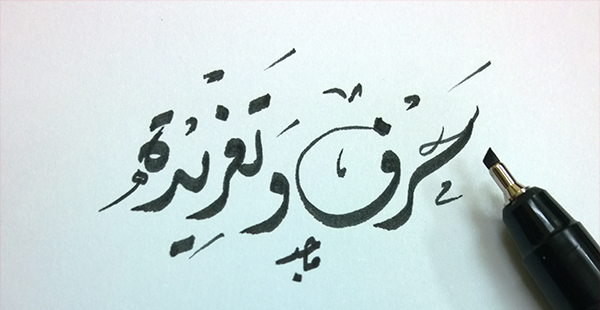 حرف وتغريدة
ماجد